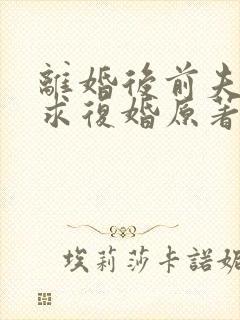 離婚後前夫
求復婚原著
埃莉莎卡諾妮